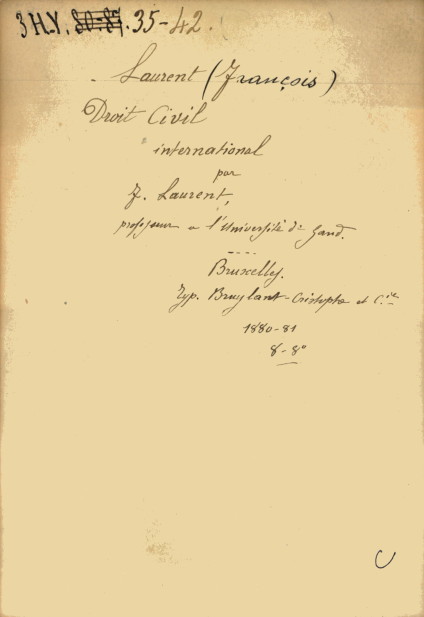 3 H.Y. 80-87. 35-42.
Laurent (François)
Droit Civil
international
par
F. Laurent,
professeur a l'Université de Gand.
----
Bruxelles.
Typ. Bruylant-Cristophe et C.ie
1880-81
8-8°
C